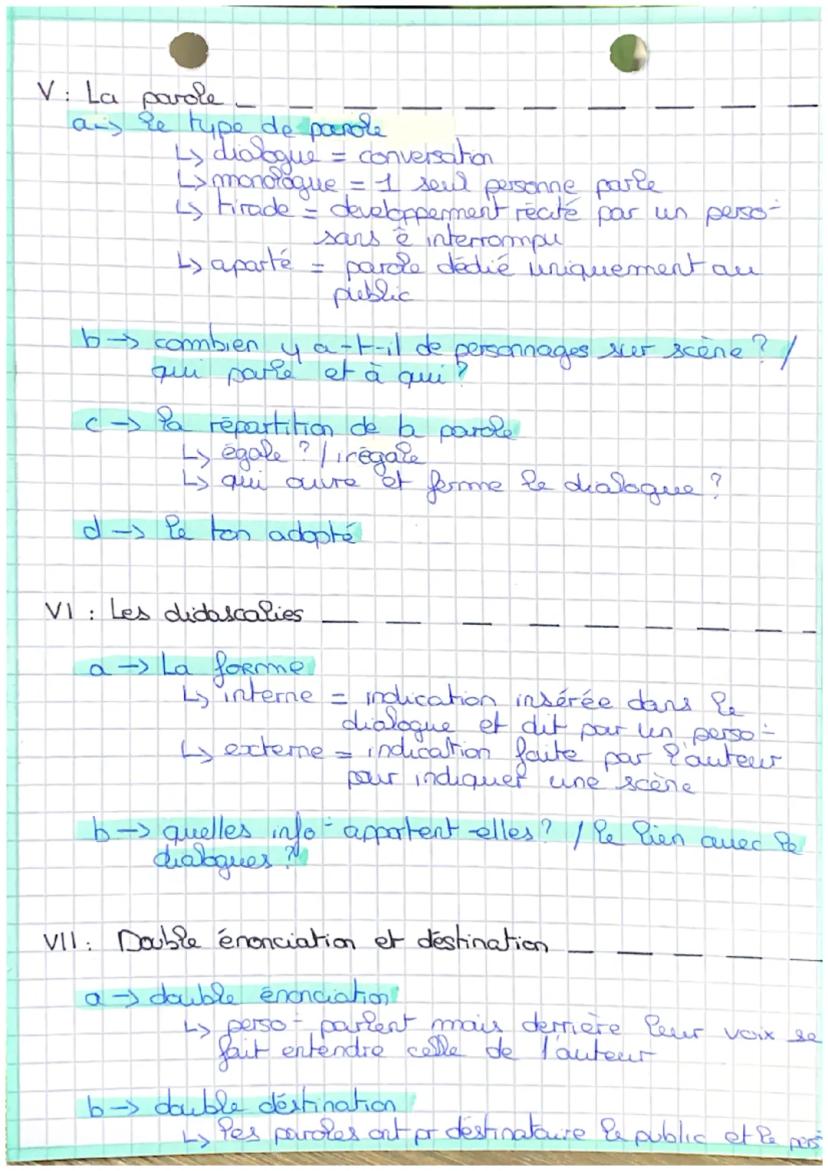 V : La parole
a -> le type de parole
↳ dialogue = conversation
↳ monologue = 1 seul personne parle
↳ tirade = developpement récité par un perso-
sans ê interrompu
↳ aparté = parole dédié uniquement au
public
b -> combien y a-t-il de personnages sur scène ? /
qui parle et à qui ?
c -> la répartition de la parole
↳ égale ? / irégale
↳ qui ouvre et ferme le dialogue ?
d -> le ton adopté
VI : Les didascalies
a -> La forme
↳ interne = indication insérée dans le
dialogue et dit par un perso-
↳ externe = indication faite par l'auteur
pour indiquer une scène
b -> quelles info- apportent-elles ? / le lien avec le
dialogues ?
VII : Double énonciation et déstination
a -> double énonciation
↳ perso- parlent mais derrière leur voix se
fait entendre celle de l'auteur
b -> double déstination
↳ les paroles ont pr déstinataire le public et le pers